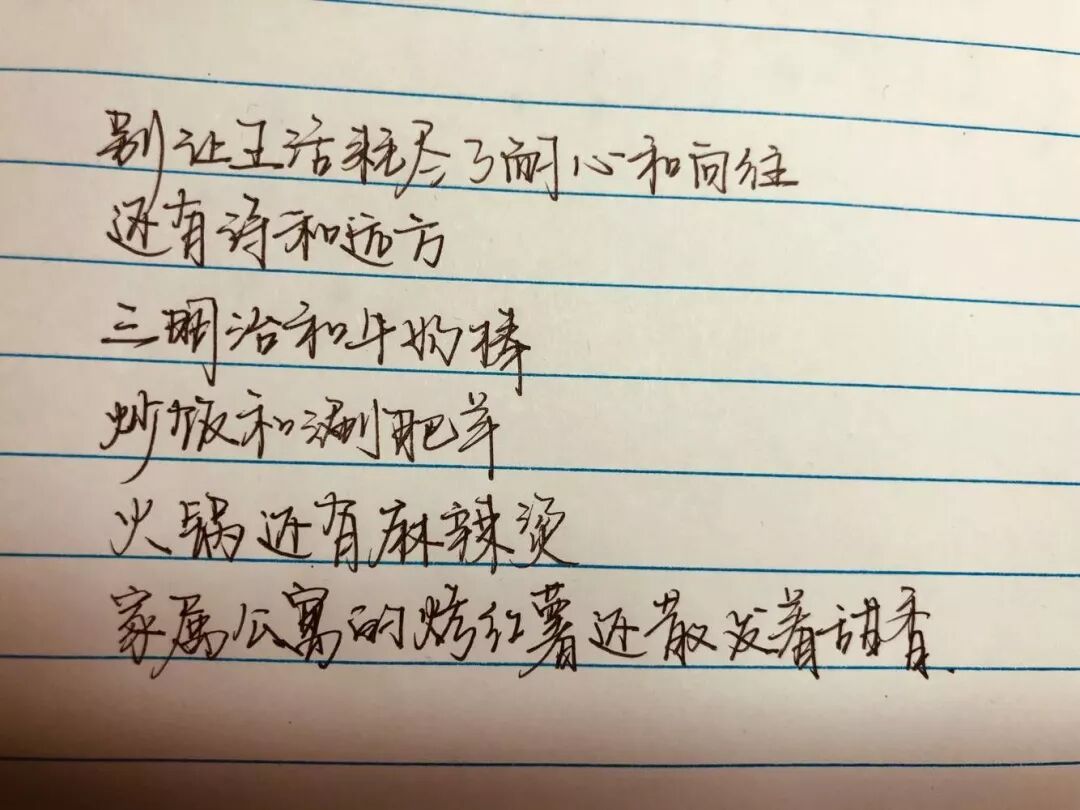 别让生活耗尽了耐心和向往
还有诗和远方
三明治和牛奶棒
炒饭和涮肥羊
火锅还有麻辣烫
家属公寓的烤红薯还散发着甜香.